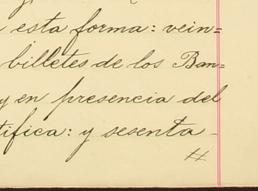 esta forma: vein=
billetes de los Ban=
y en presencia del
tifica: y sesenta-